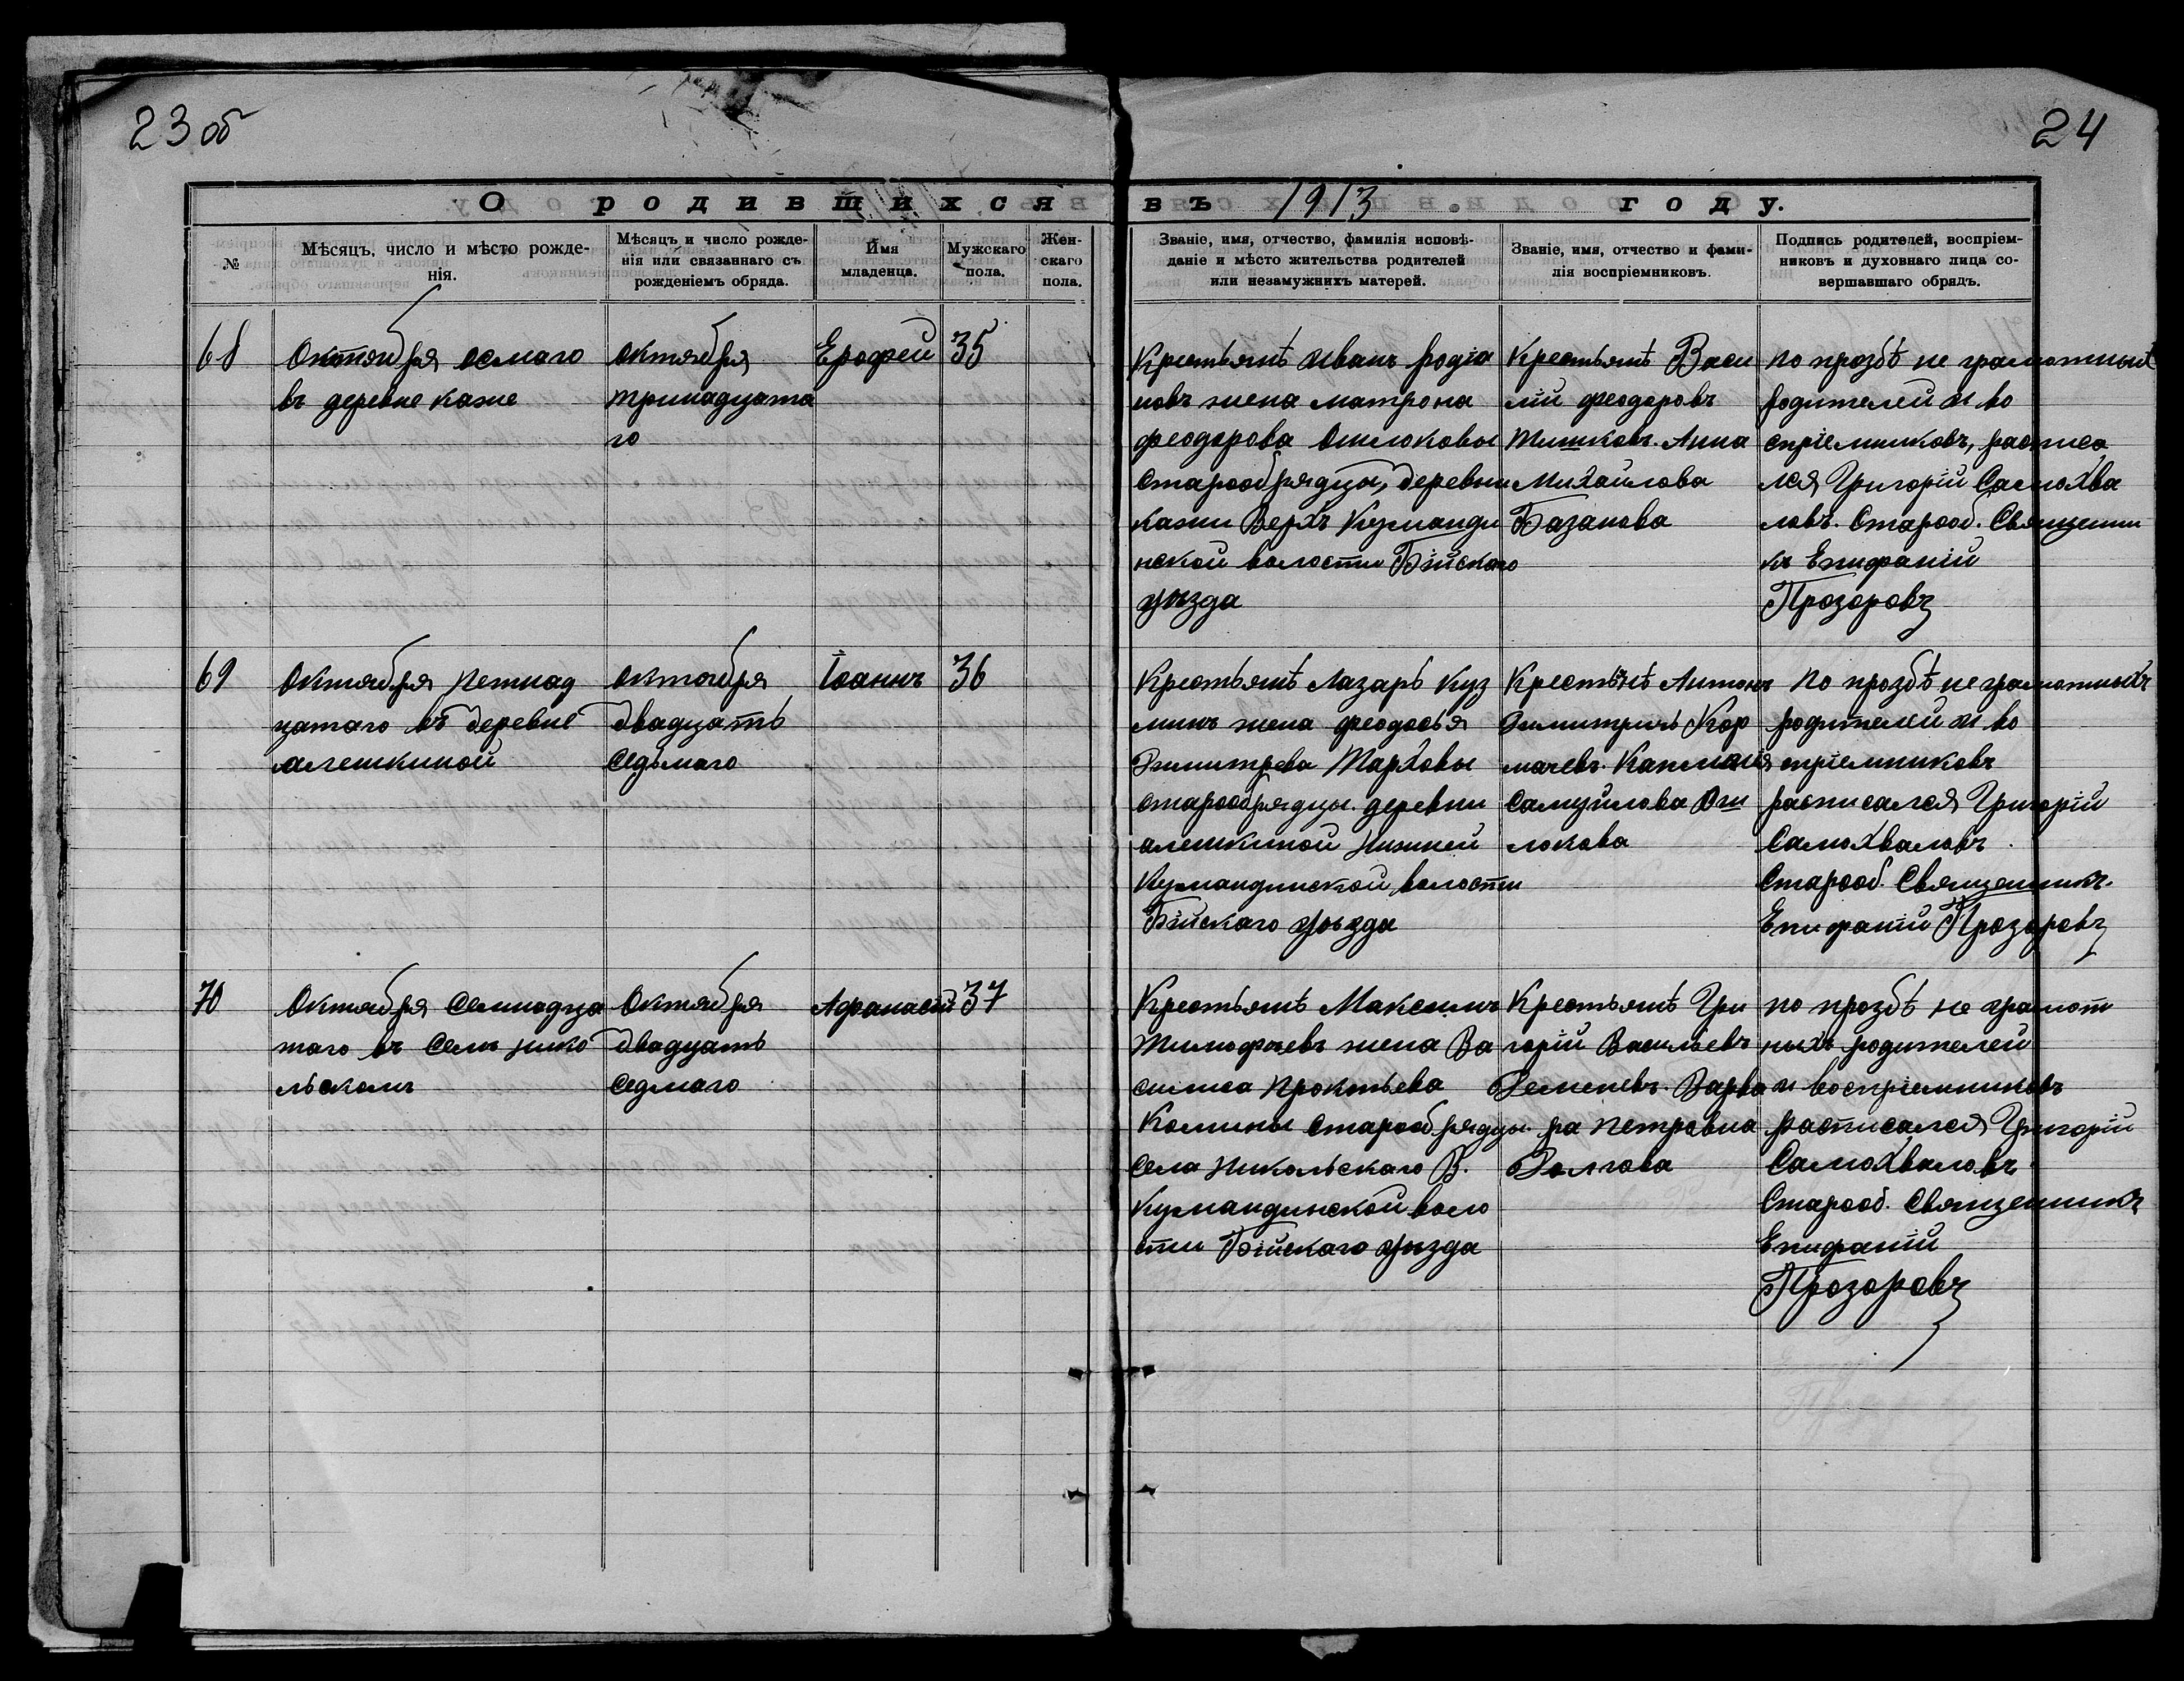 23 об
24
О родившихся въ 1913 году.
№
Мѣсяцъ, число и мѣсто рожде-
нія.
Мѣсяцъ и число рожде-
нія или связаннаго съ
рожденіемъ обряда.
Имя
младенца.
Мужскаго
пола.
Жен-
скаго
пола.
Званіе, имя, отчество, фамилія исповѣ-
даніе и мѣсто жительства родителей
или незамужнихъ матерей.
Званіе, имя, отчество и фами-
лія воспріемниковъ.
Подпись родителей, воспріем-
никовъ и духовнаго лица со-
вершавшаго обрядъ.
68
Октября осмаго
въ деревне каже
Октября
тринадцата
го
Ерофей
35
Крестьянѣ иванъ родіо
новъ жена матрона
феодорова Ошлоковы
старообрядцы, деревни
кажи Верхъ Куманди
нской волости Бійскаго
уѣзда
Крестьянѣ Васи
лій феодоровъ
Тишковъ. Анна
Михаилова
Базанова
по прозбѣ не грамотных
родителей и во
спріемниковъ, расписа
лся Григорій Самохва
ловъ. Старооб. Священни
къ Епифаній
Прозоровъ
69
Октября петнад
цатаго въ деревне
алешкиной
Октября
двадцать
седьмаго
Іоаннъ
36
Крестьянѣ Лазарь Куз
минъ жена феодосья
Димитрева Тарховы
старообрядцы. деревни
алешкиной Нижней
Кумандинской волости
Бійскаго уѣзда
Крестьянѣ Антонъ
Димитричь Кор
мачевъ.
Самуилова Ош
локова
По прозбѣ не грамотныхъ
родителей и во
спріемниковъ
расписался Григорій
Самохваловъ
Старооб. Священникъ.
Епифаній Прозоровъ
70
Октября Семнадца
таго въ Селѣ нико
льскомъ
Октября
двадцать
седмаго
Афанасій
37
Крестьянѣ Максимъ
Тимофѣевъ жена Ва
силиса прокопьева
Комины старообрядцы.
Села никольскаго В.
Кумандинской воло
сти Бійскаго уѣзда
Крестьянѣ Гри
горій Васильевъ
Варва
ра петровна
Волгова
по прозбѣ не грамот
ныхъ родителей
и воспріемниковъ
расписался Григорій
Самохваловъ
Старооб. Священникъ
Епифаній
Прозоровъ